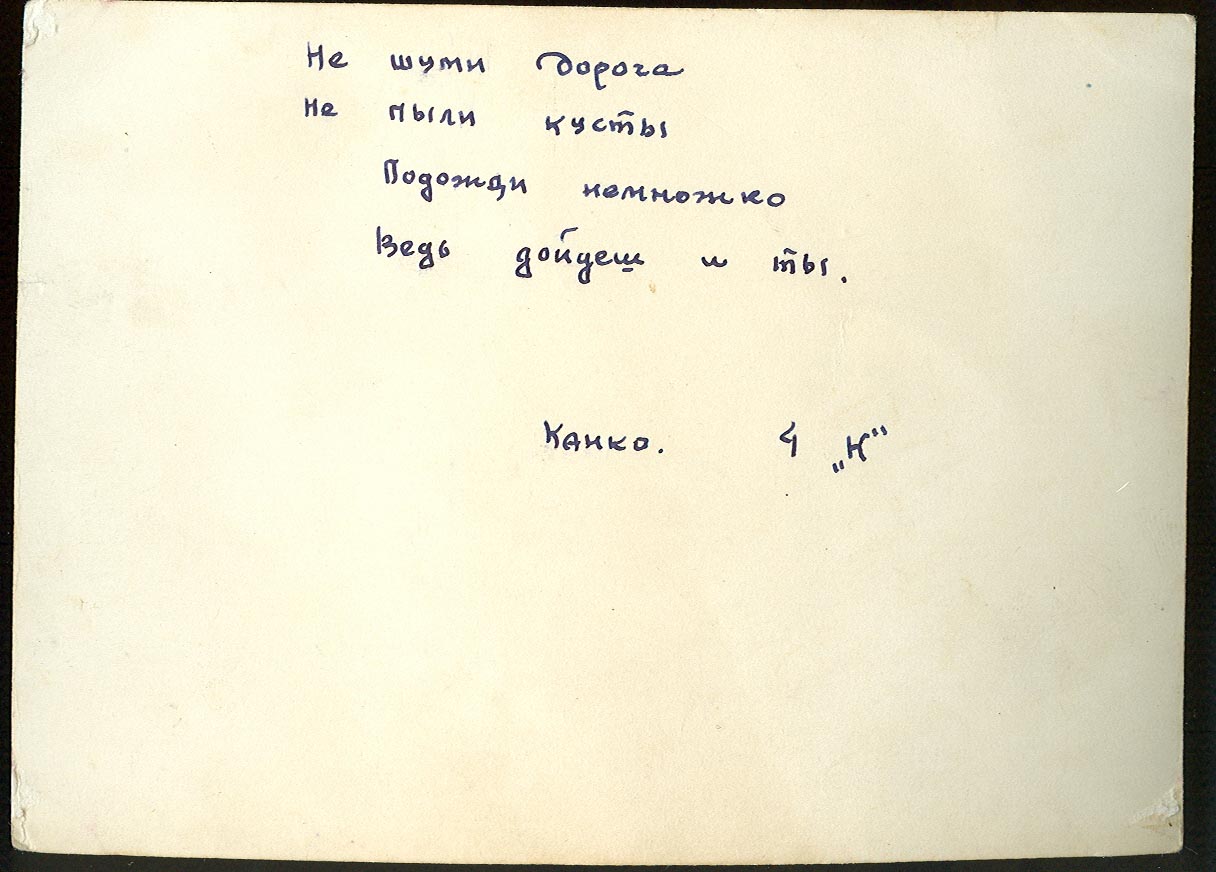 Не шуми дорога
Не пыли кусты
Подожди немножко
Ведь дойдеш и ты.
Канко. 4 „К“